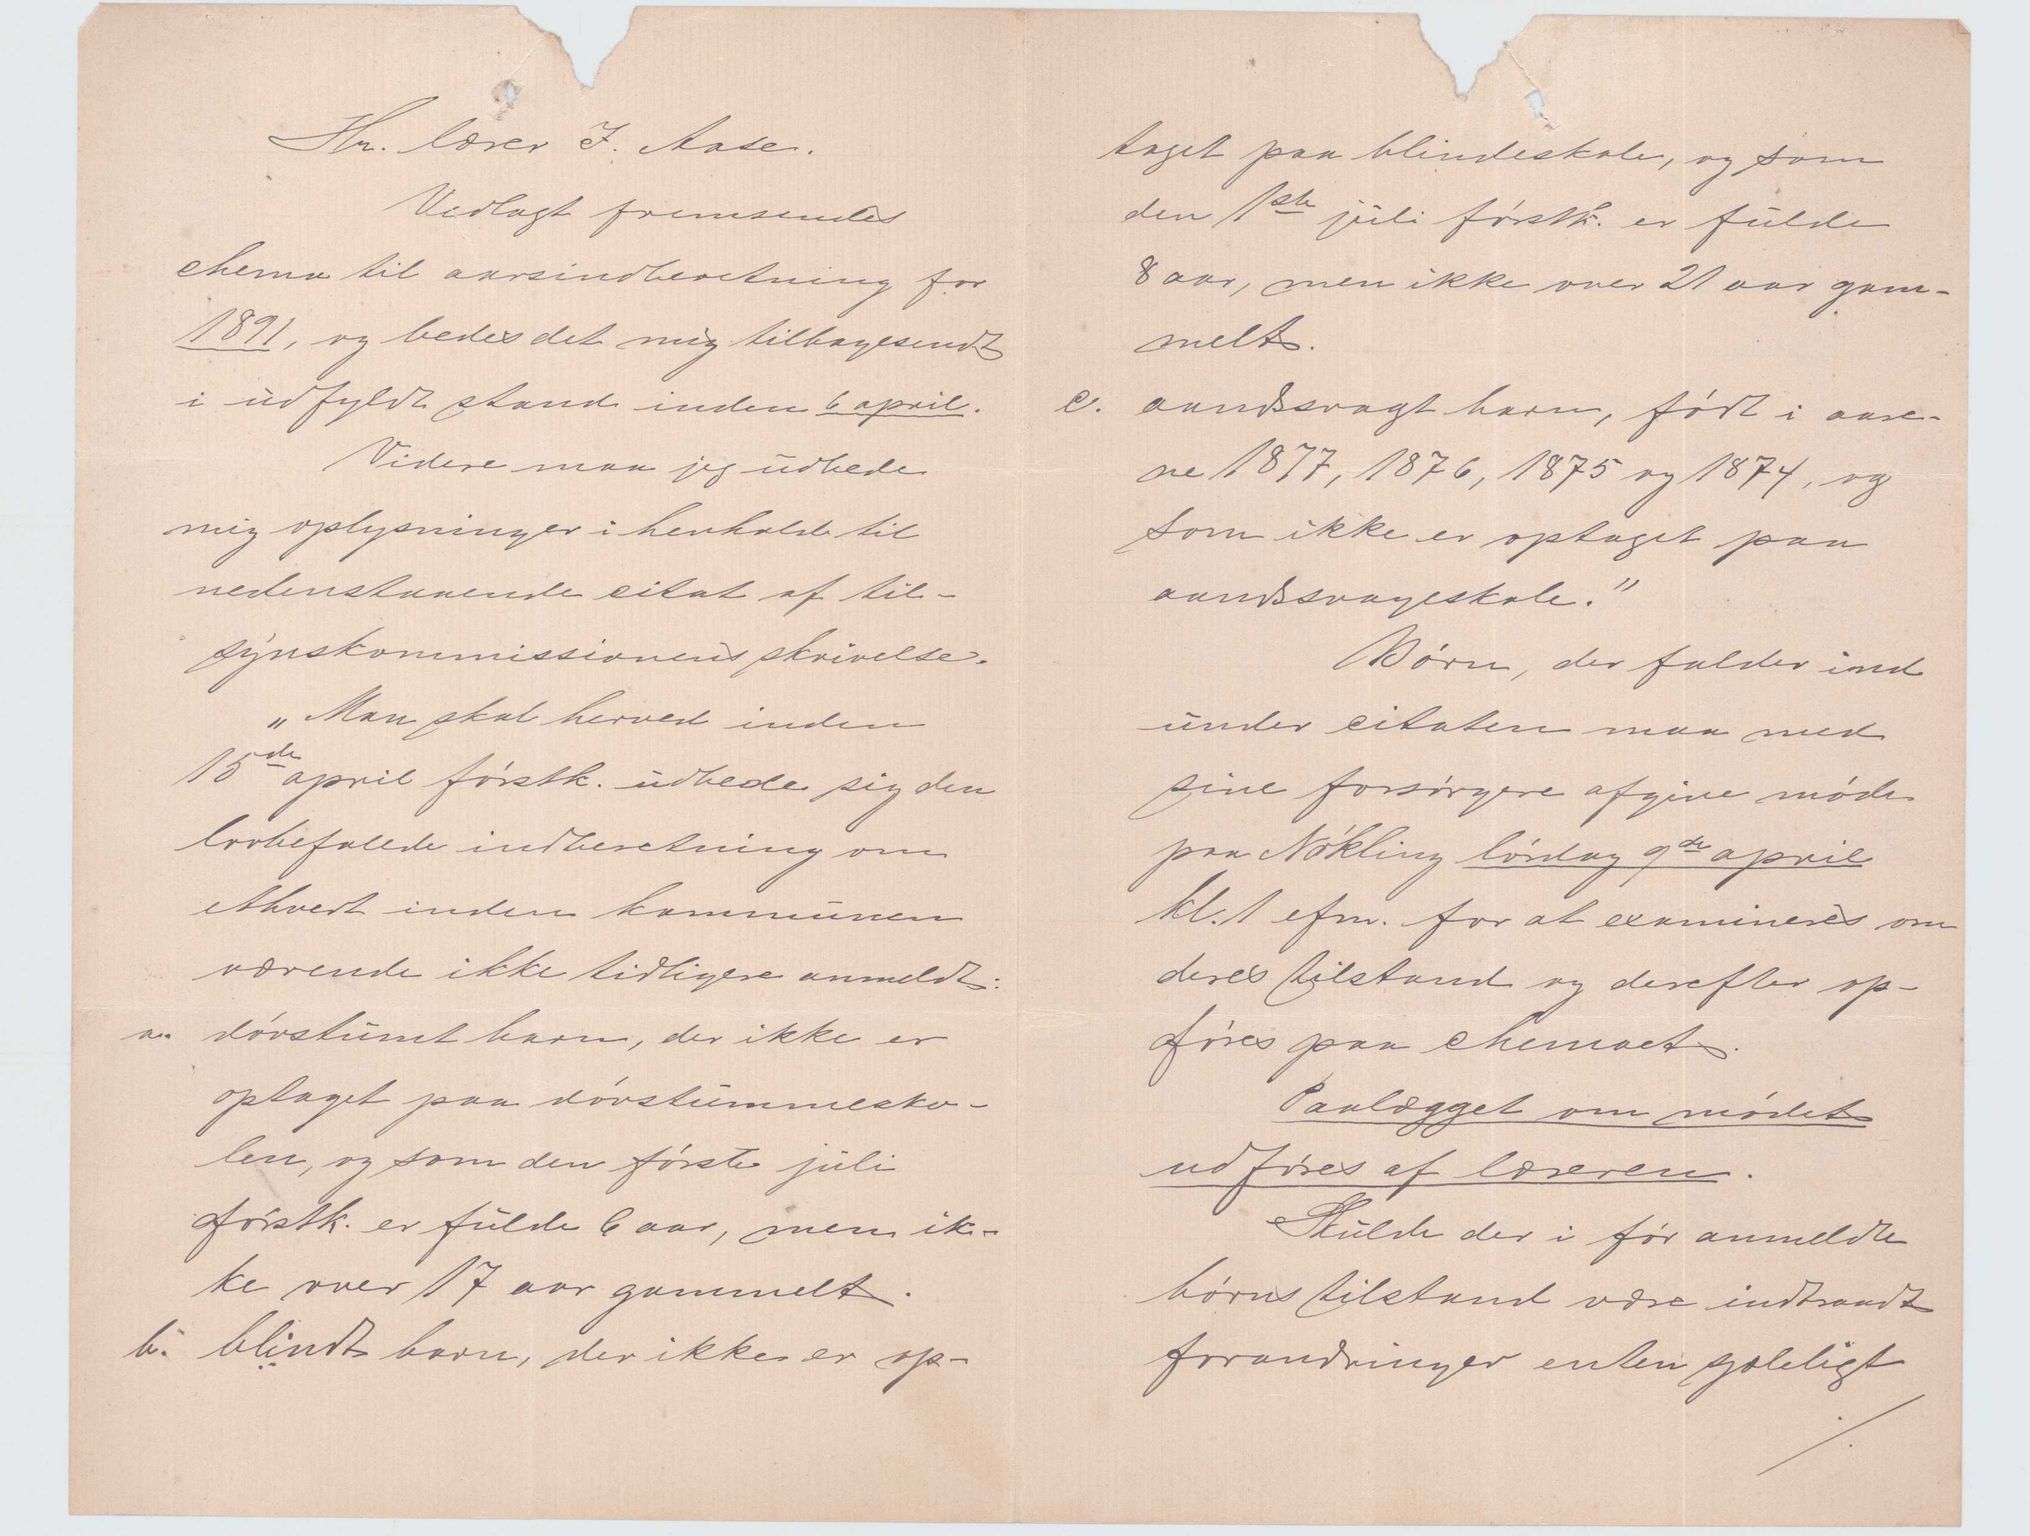 Hr. lærer J. Aase.
Vedlagt fremsendes
chema til aarsindberetning for
1891, og bedes det mig tilbagesendt
i udfyldt stand inden 6 april.
Videre maa jeg udbede
mig oplysninger i henhold til
nedenstaaende citat af til-
synskommissionens skrivelse.
„Man skal herved inden
15de april førstk. udbede sig den
lovbefalede indberetning om
ethvert inden kommunen
værende ikke tidligere anmeldt:
a. døvstumt barn, der ikke er
optaget paa døvstummesko-
len, og som den første juli
førstk. er fulde 6 aar, men ik-
ke over 17 aar gammelt.
b. blindt barn, der ikke er op-
taget paa blindeskole, og som
den 1ste juli førstk. er fulde
8 aar, men ikke over 21 aar gam-
melt.
c. aandssvagt barn, født i aare-
ne 1877, 1876, 1875 og 1874, og
som ikke er optaget paa
aandssvageskole."
Børn, der falder ind
under citaten maa med
sine forsørgere afgive møde
paa Nøkling lørdag 9de april
kl. 1 efm. for at examineres om
deres tilstand og derefter op-
føres paa chemaet.
Paalægget om mødet
udføres af læreren.
Skulde der i før anmeldte
børns tilstand være indtraadt
forandringer enten gældigt